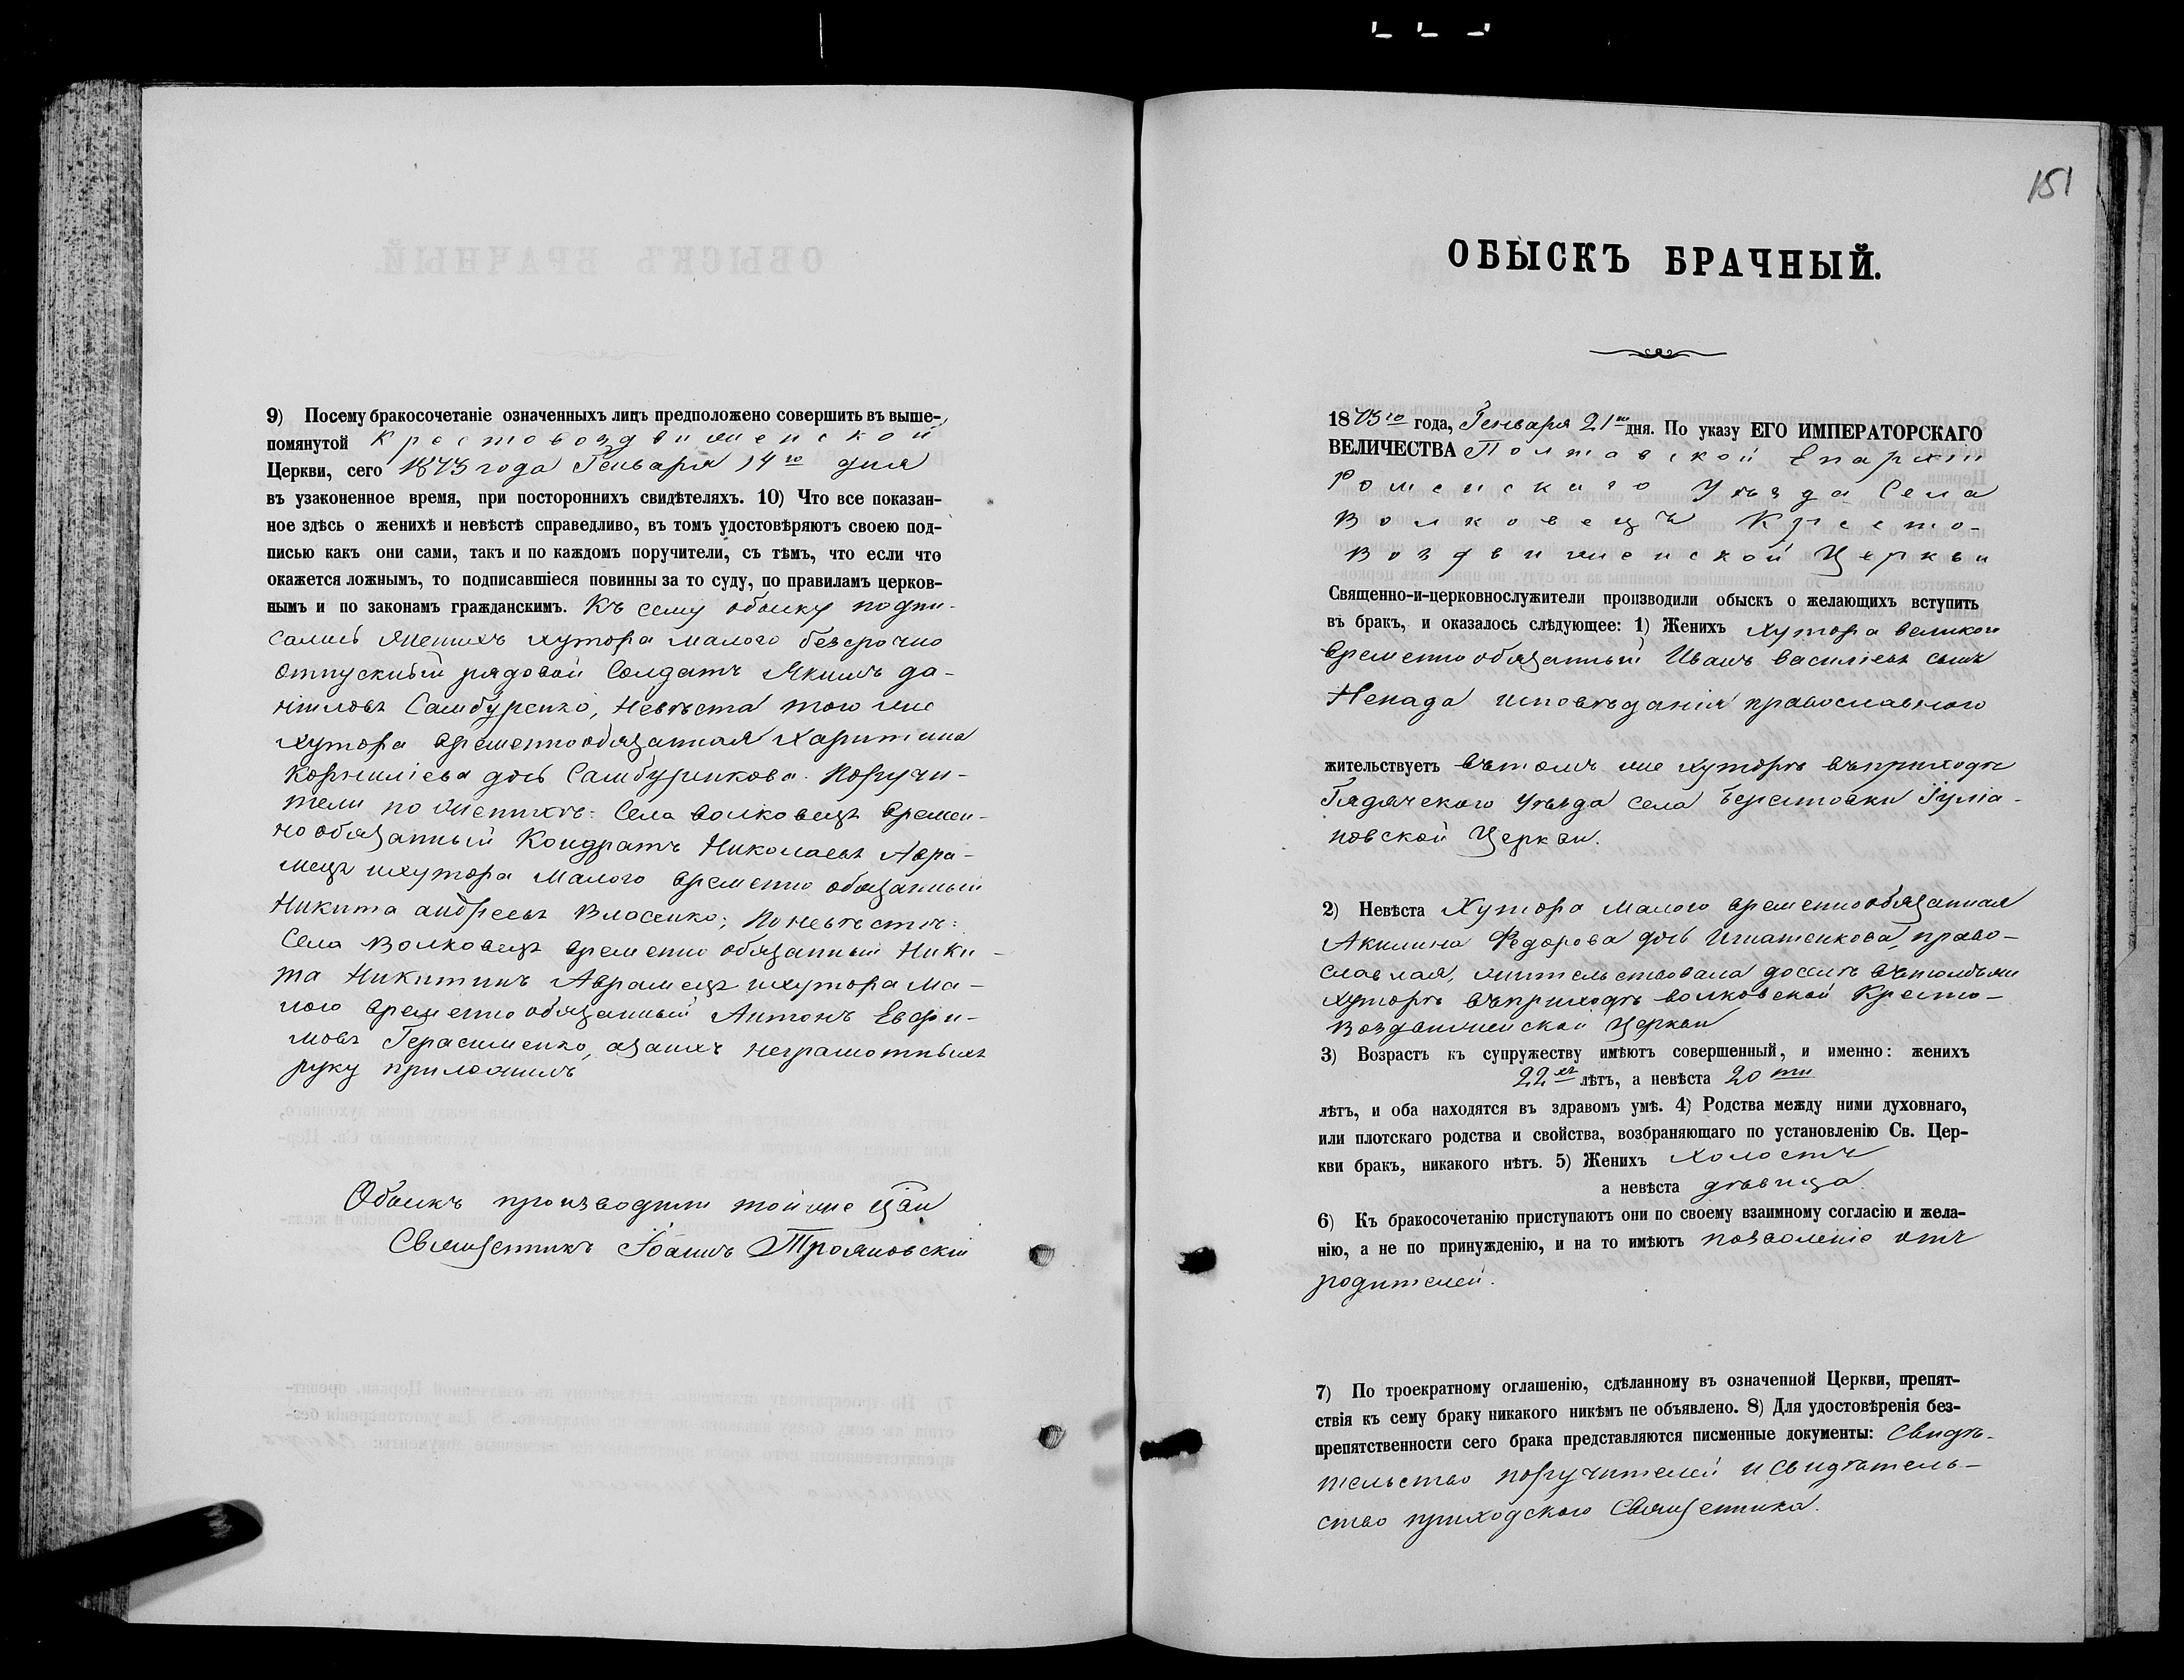 9) Посему бракосочетаніе означенныхъ лицъ предположено совершить въ выше-
помянутой Крестовоздвиженской
Церкви, сего 1873 года Генваря 14го дня
въ узаконенное время, при постороннихъ свидѣтеляхъ. 10) Что все показан-
ное здѣсь о женихѣ и невѣстѣ справедливо, въ томъ удостовѣряютъ своею под-
писью какъ они сами, такъ и по каждомъ поручители, съ тѣмъ, что если что
окажется ложнымъ, то подписавшіеся повинны за то суду, по правиламъ церков-
нымъ и по законамъ гражданскимъ. Къ сему обыску подпи-
сались Женихъ хутора Малого безсрочно
отпускный рядовой Солдатъ Якимъ да-
ніиловъ Самбуренко, Невѣста того же
хутора временнообязанная Харитина
Корниліева дочь Самбуренкова. Поручи-
тели по женихѣ: Села Волковецъ времен-
нообязанный Кондратъ Николаевъ Авра-
мецъ ихутора Малого временно обязанный
Никита андреевъ Власенко; по невѣстѣ:
Села Волковецъ временно обязанный Ники-
та Никитинъ Аврамецъ ихутора Ма-
лого временнообязанный Антонъ Евфи-
мовъ Герасименко, азанихъ неграмотныхъ
руку приложилъ
Обыскъ производили тойже Цѣви
Священникъ Іоаннъ Трояновскій
151
ОБЫСКЪ БРАЧНЫЙ.
1873го года, Генваря 21го дня. По указу ЕГО ИМПЕРАТОРСКАГО
ВЕЛИЧЕСТВА Полтавской Епархіи
Роменскаго Уѣзда Села
Волковецъ Кресто-
Воздвиженской Церкви
Священно-и-церковнослужители производили обыскъ о желающихъ вступить
въ бракъ, и оказалось слѣдующее: 1) Женихъ Хутора великого
временнообязанный Иванъ василіевъ сынъ
Ненада исповѣданія православного
жительствуетъ вътомъ же хуторѣ въприходѣ
Гадячского Уѣзда села Берестовки Іуліа-
новской Церкви.
2) Невѣста Хутора Малого временнообязанная
Акилина Федорова дочь Игнатенкова, право-
славная, жительствовала доселѣ вътомъже
хуторѣ въприходѣ волковской Кресто-
Воздвиженской Церкви
3) Возрастъ къ супружеству имѣютъ совершенный, и именно: женихъ
22хъ лѣтъ, а невѣста 20ти
лѣтъ, и оба находятся въ здравомъ умѣ. 4) Родства между ними духовнаго,
или плотскаго родства и свойства, возбраняющаго по установленію Св. Цер-
кви бракъ, никакого нѣтъ. 5) Женихъ Холостъ
а невѣста дѣвица.
6) Къ бракосочетанію приступаютъ они по своему взаимному согласію и жела-
нію, а не по принужденію, и на то имѣютъ позволеніе отъ
родителей.
7) По троекратному оглашенію, сдѣланному въ означенной Церкви, препят-
ствія къ сему браку никакого никѣмъ не объявлено. 8) Для удостовѣренія без-
препятственности сего брака представляются писменные документы: Свидѣ-
тельство поручителей и свидѣтель-
ство приходского Священника.